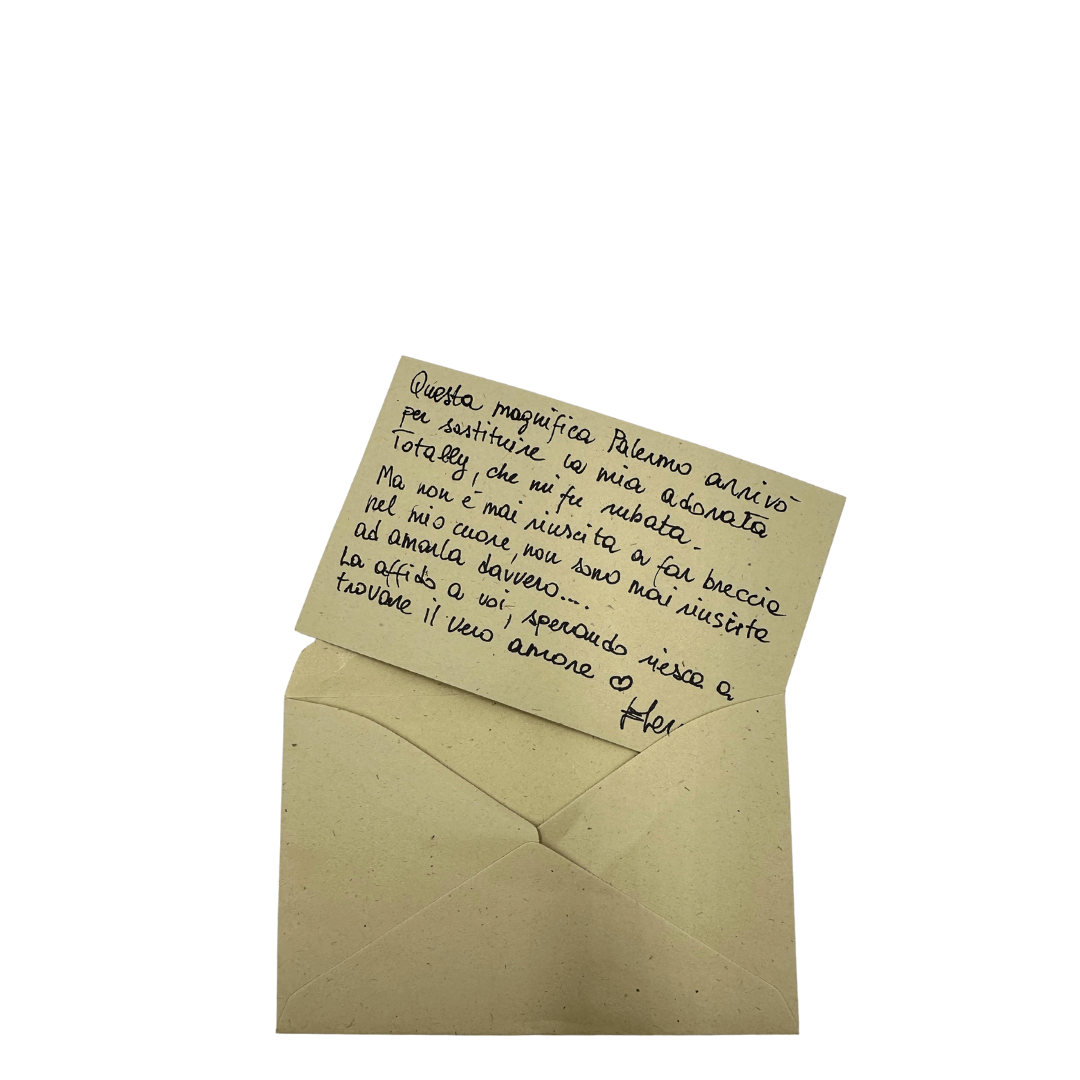 Questa magnifica Palermo arrivò
per sostituire la mia adorata
Totally, che mi fu rubata.
Ma non è mai riuscita a far breccia
nel mio cuore, non sono mai riuscita
ad amarla davvero....
La affido a voi, sperando riesca a
trovare il vero amore